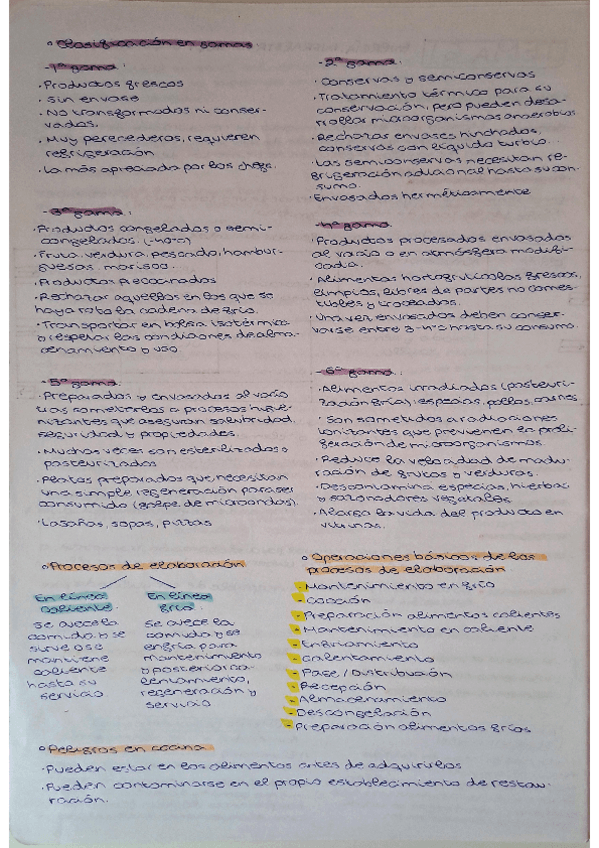 ◦ Clasificación en gamas
- 1ª gama:
· Productos frescos
· Sin envase
· No transformados ni conser-
vados.
· Muy perecederos, requieren
refrigeración
· La más apreciada por los chefs.
- 2ª gama:
· Conservas y semiconservas
· Tratamiento térmico para su
conservación, pero pueden desa-
rrollar microorganismos anaerobios
· Rechazar envases hinchados,
conservas con líquido turbio...
· Las semiconservas necesitan re-
frigeración adicional hasta su con-
sumo.
· Envasados herméticamente
- 3ª gama:
· Productos congelados o semi-
congelados.
· Fruta, verdura, pescado, hambur-
guesas, marisco.
· Productos precocinados
· Rechazar aquellos en los que se
haya roto la cadena de frío.
· Transportar en bolsa isotérmica
y respetar las condiciones de alma-
cenamiento y uso
- 4ª gama:
· Productos procesados envasados
al vacío o en atmósfera modifi-
cada.
· Alimentos hortofrutícolas frescos,
limpios, libres de partes no comes-
tibles y troceados.
· Una vez envasados deben conser-
varse entre hasta su consumo.
- 5ª gama:
· Preparados y envasados al vacío
tras someterlos a procesos higie-
nizantes que aseguran salubridad,
seguridad y propiedades.
· Muchas veces son esterilizados o
pasteurizados
· Platos preparados que necesitan
una simple regeneración para ser
consumido (golpe de microondas).
· Lasañas, sopas, pizzas
- 6ª gama:
· Alimentos irradiados (pasteuri-
zación fría), especias, pollos, carnes
· Son sometidos a radiaciones
ionizantes que previenen la proli-
feración de microorganismos.
· Reduce la velocidad de madu-
ración de frutas y verduras.
· Descontamina especias, hierbas
y sazonadores vegetales
· Alarga la vida del producto en
vitrinas.
◦ Procesos de elaboración
En línea
caliente.
Se cuece la
comida y se
sirve o se
mantiene
caliente
hasta su
servicio
En línea
fría.
Se cuece la
comida y se
enfría para
mantenimiento
y posterior ca-
lentamiento,
regeneración y
servicio
◦ Operaciones básicas de los
procesos de elaboración
- Mantenimiento en frío
- Cocción
- Preparación alimentos calientes
- Mantenimiento en caliente
- Enfriamiento
- Calentamiento
- Pase / Distribución
- Recepción
- Almacenamiento
- Descongelación
- Preparación alimentos fríos
◦ Peligros en cocina
· Pueden estar en los alimentos antes de adquirirlos
· Pueden contaminarse en el propio establecimiento de restau-
ración.